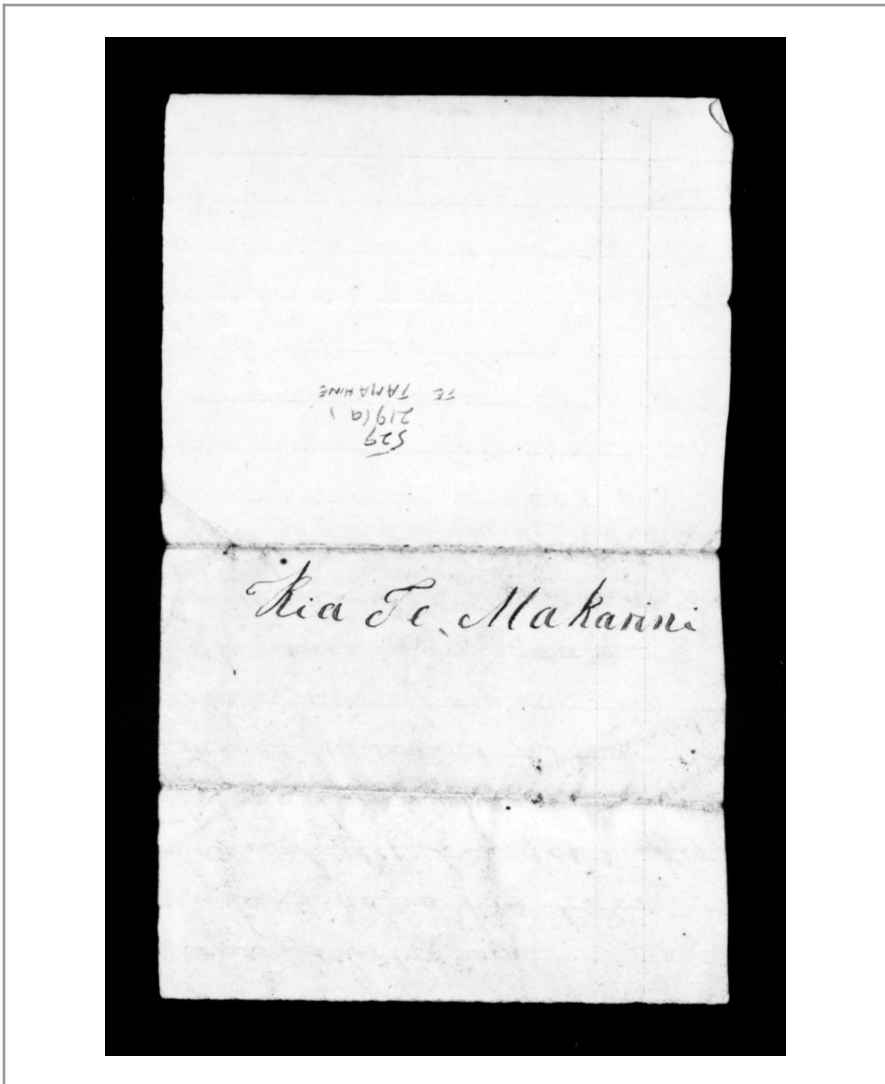 529
219(a)
TE TAMAHINE
Kia Te Makarini